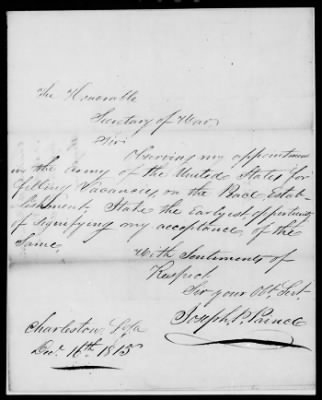 The Honorable
Secretary of War
Sir
Observing my appointment
in the Army of the United States for
filling Vacancies on the Peace Estab-
lishment, I take the Earliest opportunity
of Signifying my acceptance of the
Same
With Sentiments of
Respect
Sir your Obt. Servt.
Joseph P.
Charleston So Ca
Decr. 16th 1815